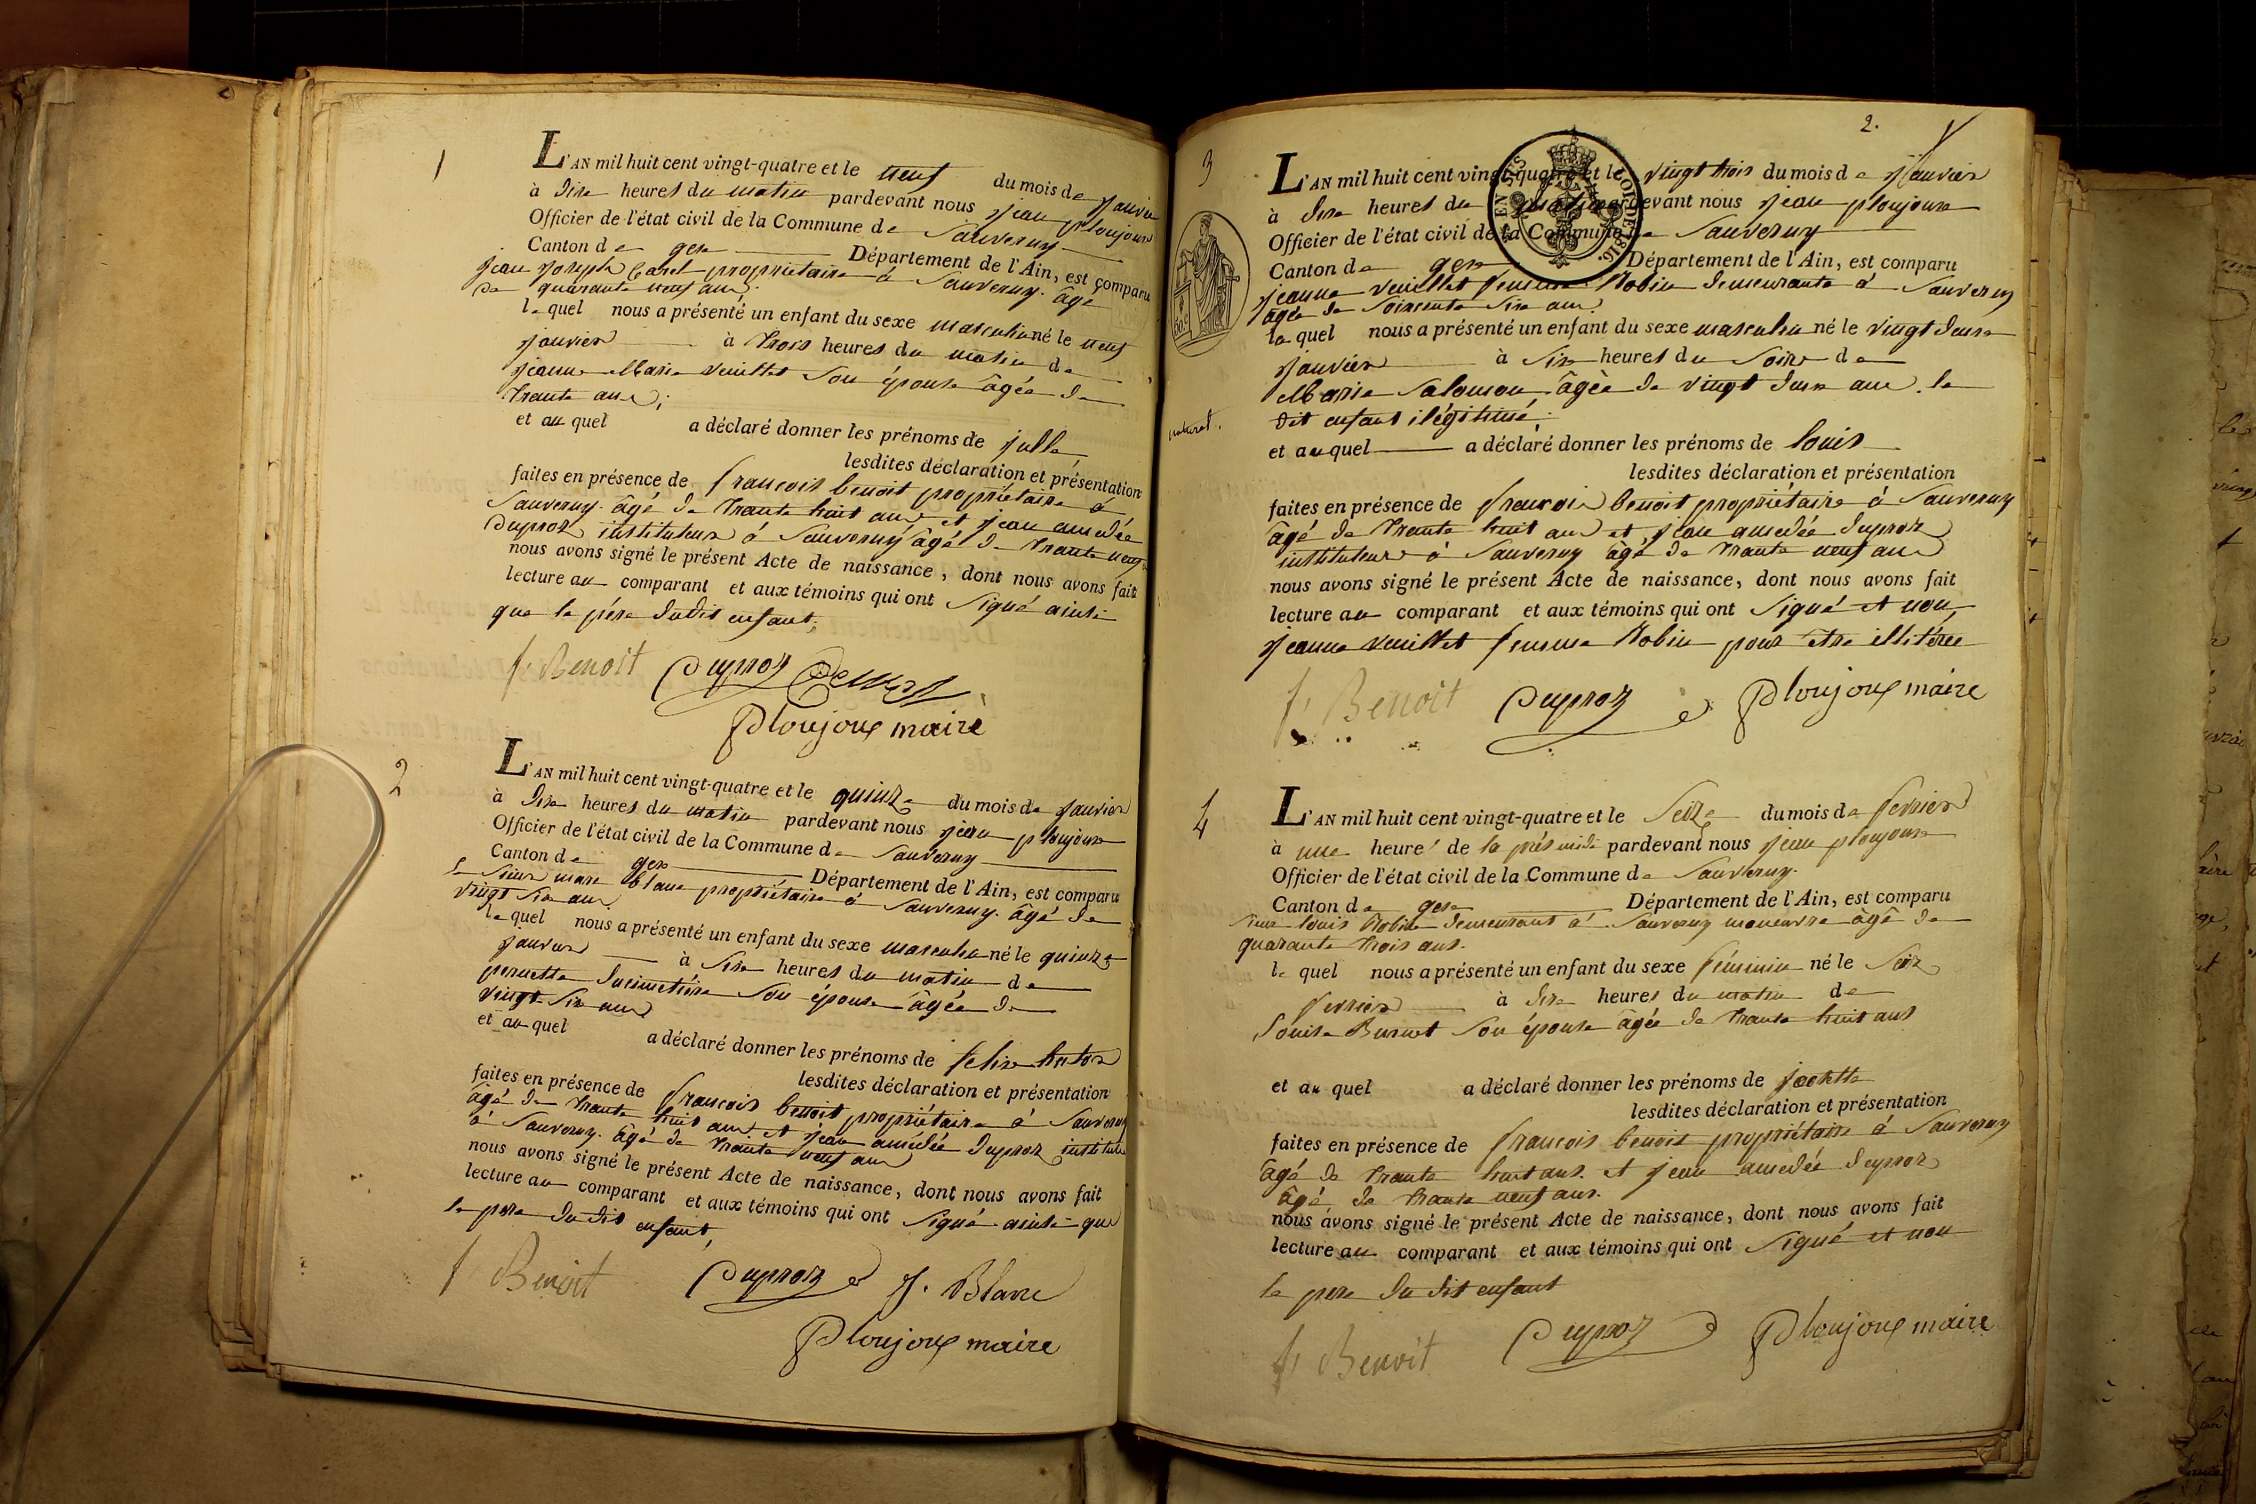 1
L'AN mil huit cent vingt-quatre et le neuf du mois de janvier
à dix heures du matin pardevant nous jean ploujoux
Officier de l'état civil de la Commune de Sauverny
Canton de gex Département de l'Ain, est comparu
jean joseph propriétaire à Sauverny. âgé
de quarante neuf ans.
le quel nous a présenté un enfant du sexe masculin né le neuf
janvier à trois heures du matin de
jeanne Marie veuillet son épouse âgée de
trente ans;
et au quel a déclaré donner les prénoms de
lesdites déclaration et présentation
faites en présence de francois benoit propriétaire à
Sauverny. âgé de trente huit ans et jean amedée
Duproz instituteur à Sauverny âgé de trente neuf
nous avons signé le présent Acte de naissance, dont nous avons fait
lecture au comparant et aux témoins qui ont signé ainsi
que le pére dudit enfant;
f. Benoit Duproz
Ploujoux maire
2
L'AN mil huit cent vingt-quatre et le quinze du mois de janvier
à dix heures du matin pardevant nous jean ploujoux
Officier de l'état civil de la Commune de Sauverny
Canton de gex Département de l'Ain, est comparu
le sieur marc blanc propriétaire à Sauverny. âgé de
vingt six ans
le quel nous a présenté un enfant du sexe masculin né le quinze
janvier à six heures du matin de
pernette ducimetière son épouse âgée de
vingt six ans
et au quel a déclaré donner les prénoms de felix
lesdites déclaration et présentation
faites en présence de francois benoit propriétaire à Sauverny
âgé de trente huit ans et jean amédée duproz institut
à Sauverny. âgé de trente neuf ans
nous avons signé le présent Acte de naissance, dont nous avons fait
lecture au comparant et aux témoins qui ont signé ainsi que
le pere du dit enfant,
f Benoit Duproz J. Blanc
Ploujoux maire
2.
3
L'AN mil huit cent vingt-quatre et le vingt trois du mois de janvier
à dix heures du matin pardevant nous jean ploujoux
Officier de l'état civil de la Commune de Sauverny
Canton de gex Département de l'Ain, est comparu
jeanne veuillet femme Robin demeurante à Sauverny
âgée de soixente six ans
la quel nous a présenté un enfant du sexe masculin né le vingt deux
janvier à six heures du soir de
Marie Salomon âgée de vingt deux ans. le
dit enfant ilégitimé;
naturel.
et au quel a déclaré donner les prénoms de louis
lesdites déclaration et présentation
faites en présence de francois benoit propriétaire à Sauverny
âgé de trente huit ans et jean amedée duproz
instituteur à Sauverny âgé de trente neuf ans
nous avons signé le présent Acte de naissance, dont nous avons fait
lecture au comparant et aux témoins qui ont signé et non,
jeanne veuillet femme Robin pour etre illitérée
f. Benoit Duproz Ploujoux maire
4
L'AN mil huit cent vingt-quatre et le seize du mois de fevrier
à une heure de la prés midi pardevant nous jean ploujoux
Officier de l'état civil de la Commune de Sauverny.
Canton de gex Département de l'Ain, est comparu
sieur louis Robin demeurant à Sauverny âgé de
quarante trois ans.
le quel nous a présenté un enfant du sexe féminin né le
fevrier à dix heures du matin de
Louise Burnet son épouse âgée de trente huit ans
et au quel a déclaré donner les prénoms de
lesdites déclaration et présentation
faites en présence de francois benoit propriétaire à Sauverny
âgé de trente huit ans. et jean amedée duproz
âgé de trente neuf ans.
nous avons signé le présent Acte de naissance, dont nous avons fait
lecture au comparant et aux témoins qui ont signé et non
le pere du dit enfant
f. Benoit Duproz Ploujoux maire